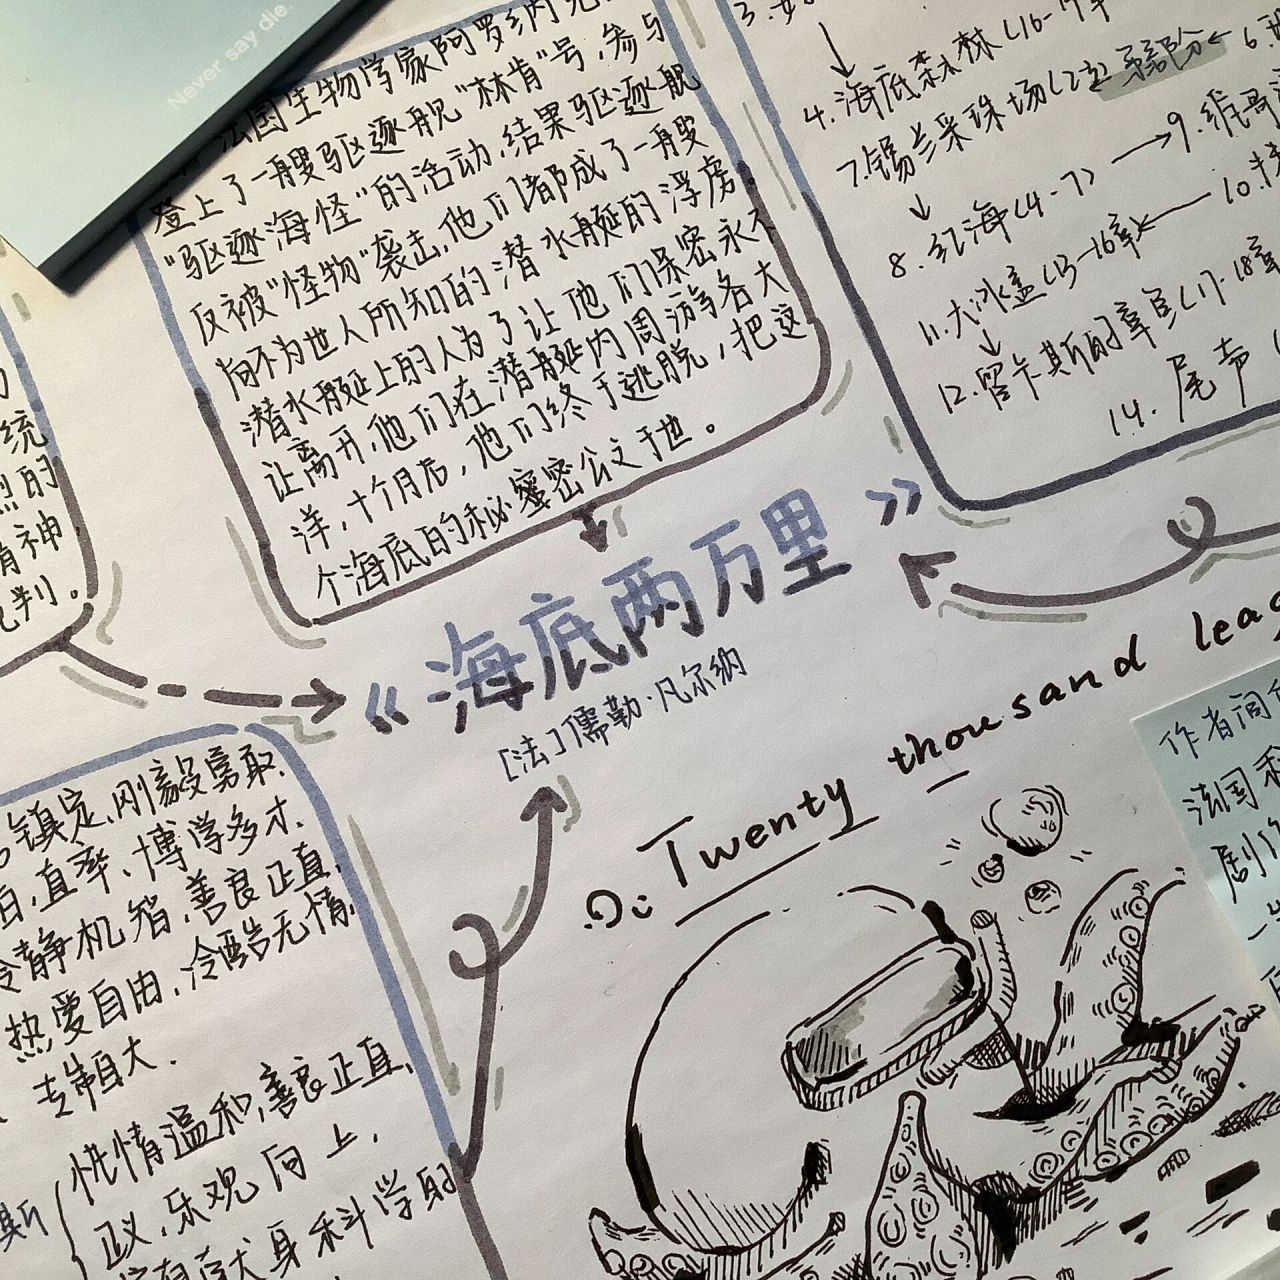 Never say die.
法国生物学家阿罗纳克
登上了一艘驱逐舰"林肯"号,参与
"驱逐海怪"的活动,结果驱逐舰
反被"怪物"袭击,他们都成了一艘
尚不为世人所知的潜水艇的浮虏,
潜水艇上的人为了让他们保密永不
让离开,他们在潜艇内周游各大
洋,十个月后,他们终于逃脱,把这
个海底的秘密公文于世。
4.海底森林(16-17章
7.锡兰采珠场(2章
9.维哥
8.红海(4-7)
10.
11.大冰盖(13-16章
12.留卡斯的章鱼(17.18章
14.尾声
统
烈的
精神,
批判。
《海底两万里》
[法]儒勒·凡尔纳
Twenty thousand lea
镇定,刚毅勇敢,
直率、博学多才,
冷静机智,善良正直,
热爱自由,冷酷无情,
自大.
性情温和,善良正直,
正义,乐观向上,
献身科学的
斯
作者
法国
剧作